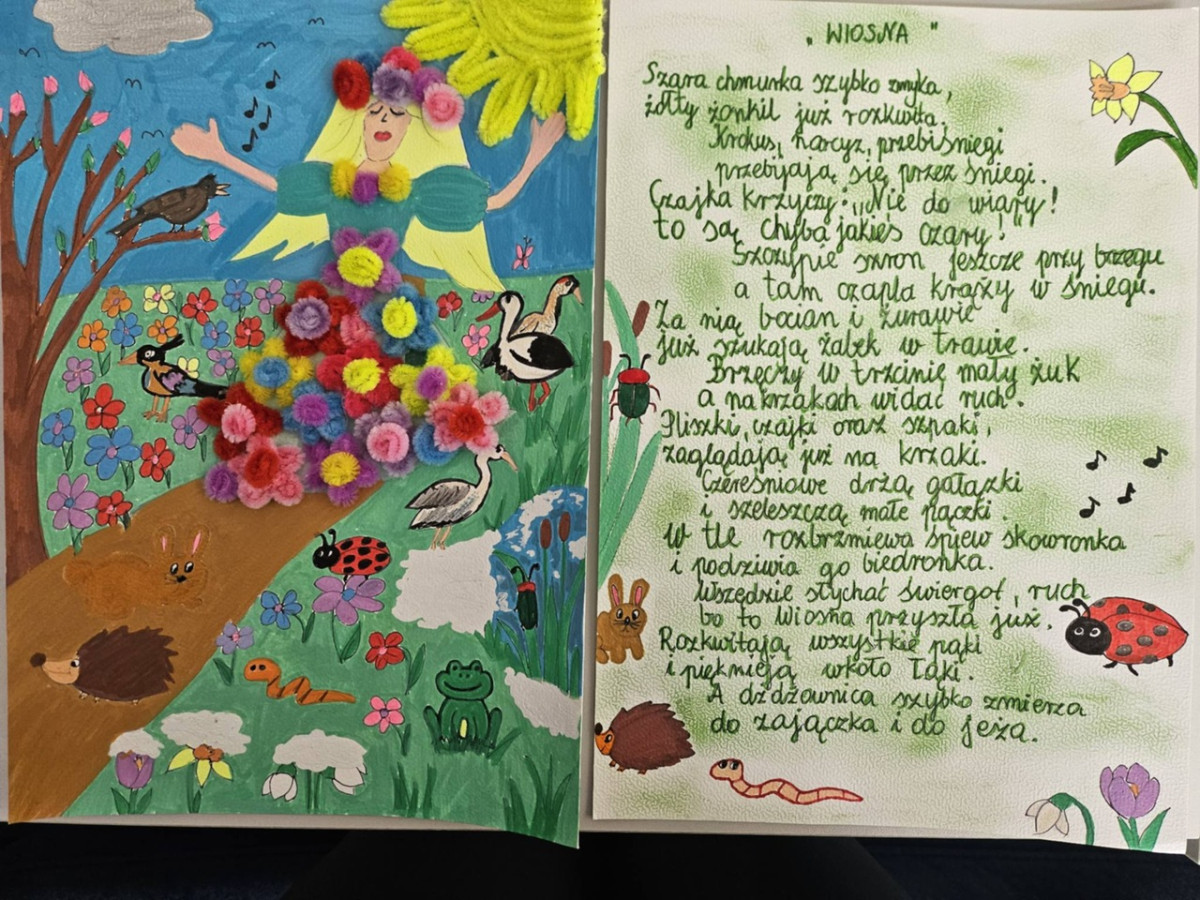 „ WIOSNA "
Szara chmurka szybko zmyka,
żółty żonkil już rozkwita.
Krokus, narcyz, przebiśniegi
przebijają się przez śniegi.
Czajka krzyczy: „Nie do wiary!
to są chyba jakieś czary!"
Szczypie szron jeszcze przy brzegu
a tam czapla krąży w śniegu.
Za nią bocian i żurawie
już szukają żabek w trawie.
Brzęczy w trzcinie mały żuk
a na krzakach widać ruch.
Pliszki, czajki oraz szpaki,
zaglądają już na krzaki.
Czereśniowe drżą gałązki
i szeleszczą małe pączki.
W tle rozbrzmiewa śpiew skowronka
i podziwia go biedronka.
Wszędzie słychać świergot, ruch
bo to Wiosna przyszła już.
Rozkwitają wszystkie pąki
i pięknieją wkoło łąki.
A dżdżownica szybko zmierza
do zajączka i do jeża.